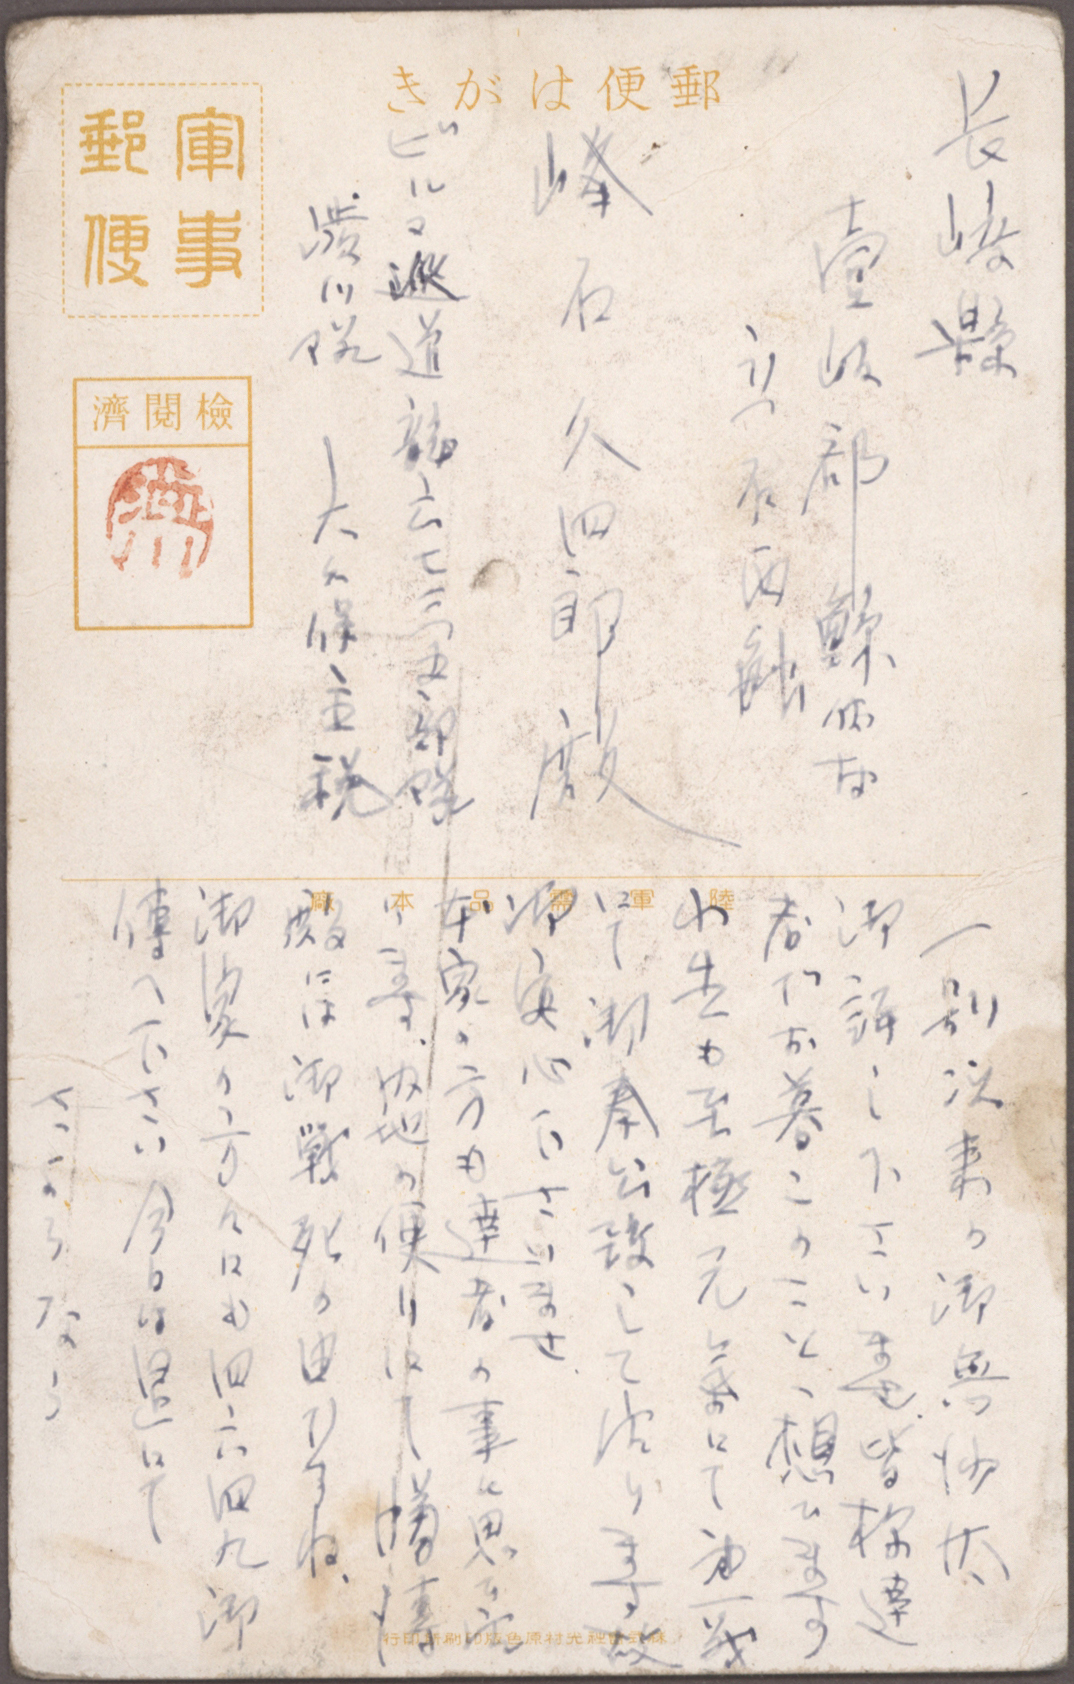 郵便はがき
軍事
郵便
檢閲濟
長崎縣
壹岐郡鯨伏村
立石西触
峰石久四郎殿
ビルマ派遣龍六七三五部隊
澁川隊
大久保主税
陸軍需品本廠
一別以来の御無沙汰
御許し下さいませ皆様達
者でお暮しのことゝ想ひます
小生も至極元気にて
にて御奉公致して居ります故
御安心下さいませ
本家の方も達者の事と思ひ
ます、内地の便りにて
殿には御戦死の由ですね、
御家の方々にも四六四九御
傳へ下さい今日は是にて
さようなら